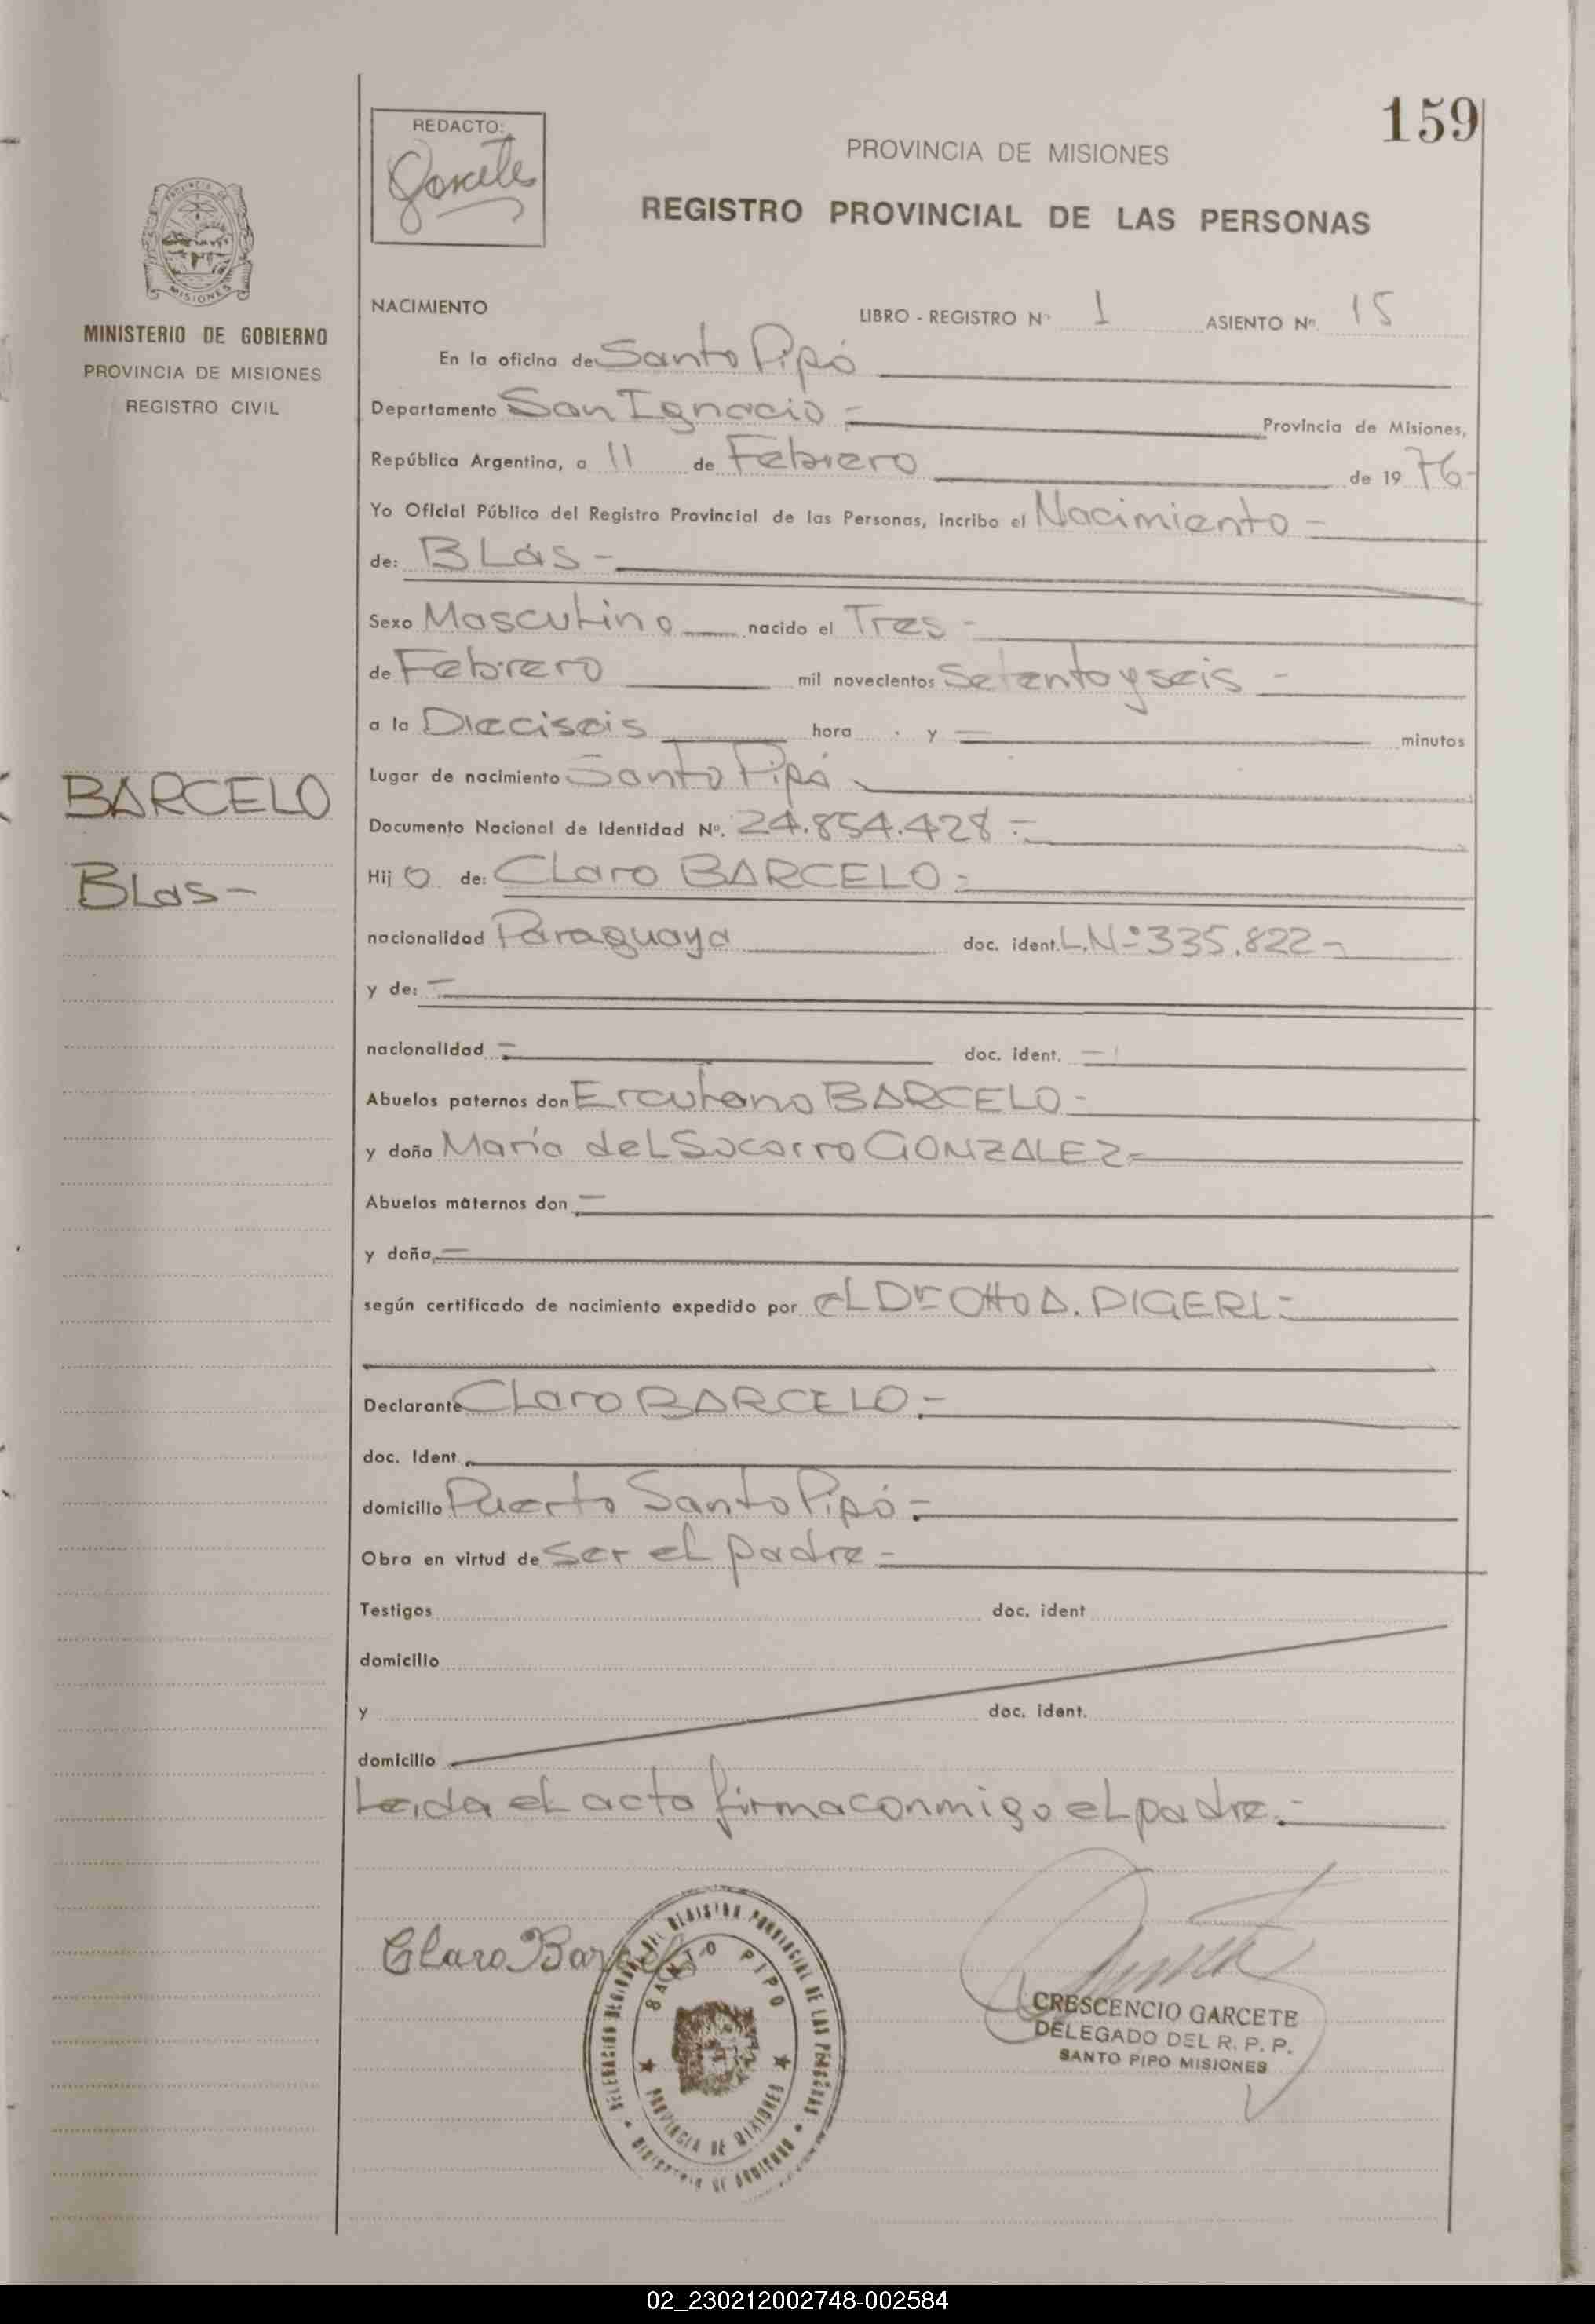 159
REDACTO:
Garcete
PROVINCIA DE MISIONES
REGISTRO PROVINCIAL DE LAS PERSONAS
MISIONES
MINISTERIO DE GOBIERNO
PROVINCIA DE MISIONES
REGISTRO CIVIL
NACIMIENTO LIBRO - REGISTRO Nº 1 ASIENTO Nº 15
En la oficina de Santo Pipó
Departamento San Ignacio - Provincia de Misiones,
República Argentina, a 11 de Febrero de 19 76-
Yo Oficial Público del Registro Provincial de las Personas, incribo el Nacimiento -
de: BLás -
Sexo Masculino nacido el Tres -
de Febrero mil novecientos Setenta y seis -
a la Dieciseis hora y — minutos
Lugar de nacimiento Santo Pipó
BARCELO
Documento Nacional de Identidad Nº. 24.854.428 -
Blas -
Hij o de: Claro BARCELO -
nacionalidad Paraguaya doc. ident. L.Nº 335.822 -
y de: —
nacionalidad — doc. ident. —
Abuelos paternos don Erculano BARCELO -
y doña María del Socorro GONZALEZ -
Abuelos maternos don —
y doña —
según certificado de nacimiento expedido por el Dr Otto A. DIGERI -
Declarante Claro BARCELO -
doc. Ident.
domicilio Puerto Santo Pipó -
Obra en virtud de ser el padre -
Testigos doc. ident
domicilio
y doc. ident.
domicilio
Leida el acta firma conmigo el padre. -
Claro Barcelo
DELEGACION REGIONAL DEL REGISTRO PROVINCIAL DE LAS PERSONAS
SANTO PIPO
PROVINCIA DE MISIONES
MINISTERIO DE GOBIERNO
CRESCENCIO GARCETE
DELEGADO DEL R. P. P.
SANTO PIPO MISIONES
02_230212002748-002584